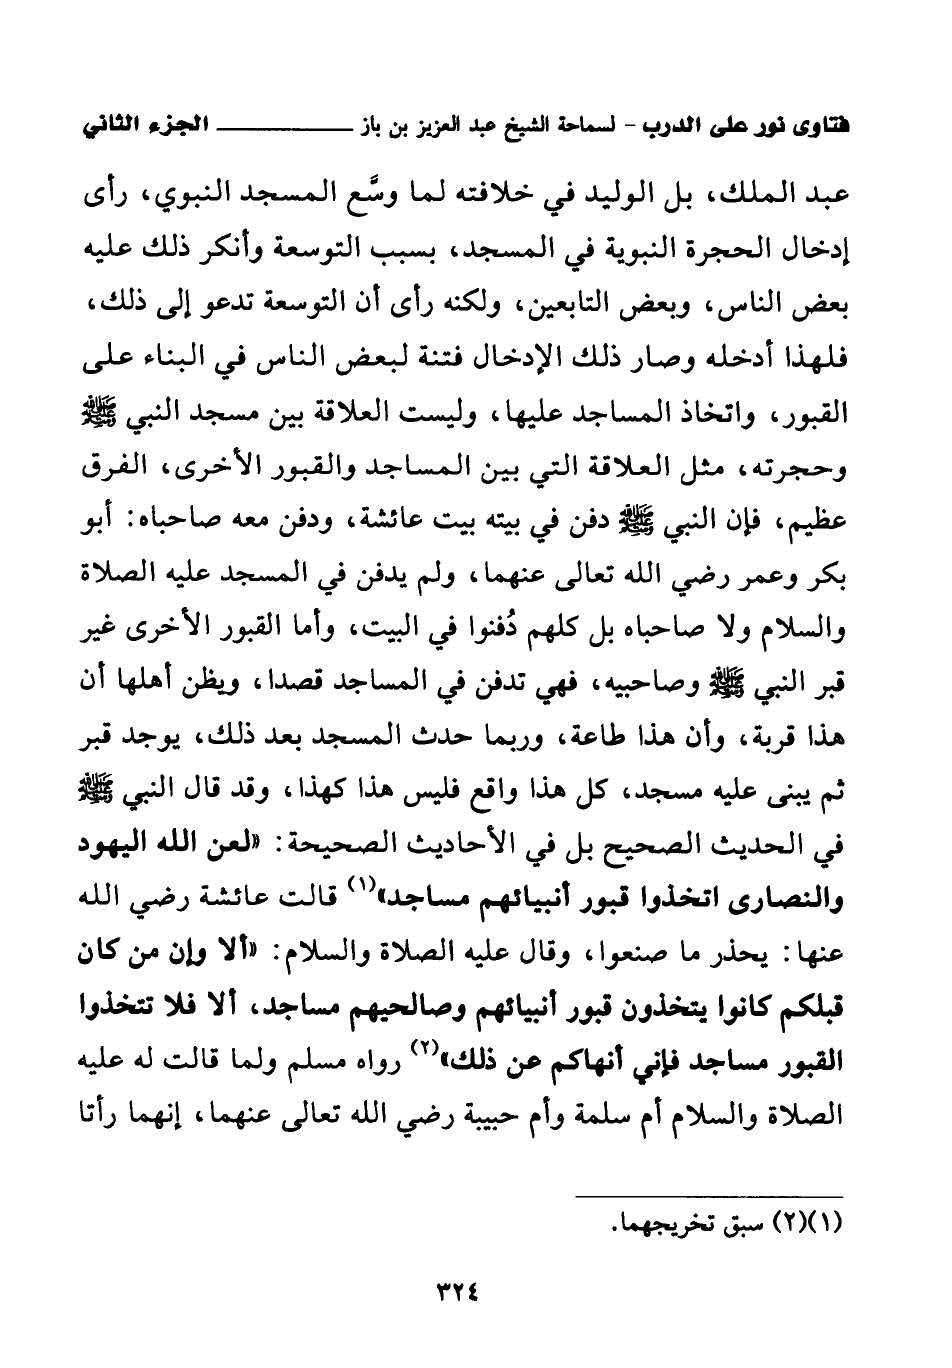 فتاوى نور على الدرب - لسماحة الشيخ عبد العزيز بن باز ــــــــــــــــ الجزء الثاني
عبد الملك، بل الوليد في خلافته لما وسَّع المسجد النبوي، رأى
إدخال الحجرة النبوية في المسجد، بسبب التوسعة وأنكر ذلك عليه
بعض الناس، وبعض التابعين، ولكنه رأى أن التوسعة تدعو إلى ذلك،
فلهذا أدخله وصار ذلك الإدخال فتنة لبعض الناس في البناء على
القبور، واتخاذ المساجد عليها، وليست العلاقة بين مسجد النبي ﷺ
وحجرته، مثل العلاقة التي بين المساجد والقبور الأخرى، الفرق
عظيم، فإن النبي ﷺ دفن في بيته بيت عائشة، ودفن معه صاحباه: أبو
بكر وعمر رضي الله تعالى عنهما، ولم يدفن في المسجد عليه الصلاة
والسلام ولا صاحباه بل كلهم دُفنوا في البيت، وأما القبور الأخرى غير
قبر النبي ﷺ وصاحبيه، فهي تدفن في المساجد قصدا، ويظن أهلها أن
هذا قربة، وأن هذا طاعة، وربما حدث المسجد بعد ذلك، يوجد قبر
ثم يبنى عليه مسجد، كل هذا واقع فليس هذا كهذا، وقد قال النبي ﷺ
في الحديث الصحيح بل في الأحاديث الصحيحة: «لعن الله اليهود
والنصارى اتخذوا قبور أنبيائهم مساجد»(١) قالت عائشة رضي الله
عنها: يحذر ما صنعوا، وقال عليه الصلاة والسلام: «ألا وإن من كان
قبلكم كانوا يتخذون قبور أنبيائهم وصالحيهم مساجد، ألا فلا تتخذوا
القبور مساجد فإني أنهاكم عن ذلك»(٢) رواه مسلم ولما قالت له عليه
الصلاة والسلام أم سلمة وأم حبيبة رضي الله تعالى عنهما، إنهما رأتا
(١)(٢) سبق تخريجهما.
٣٢٤